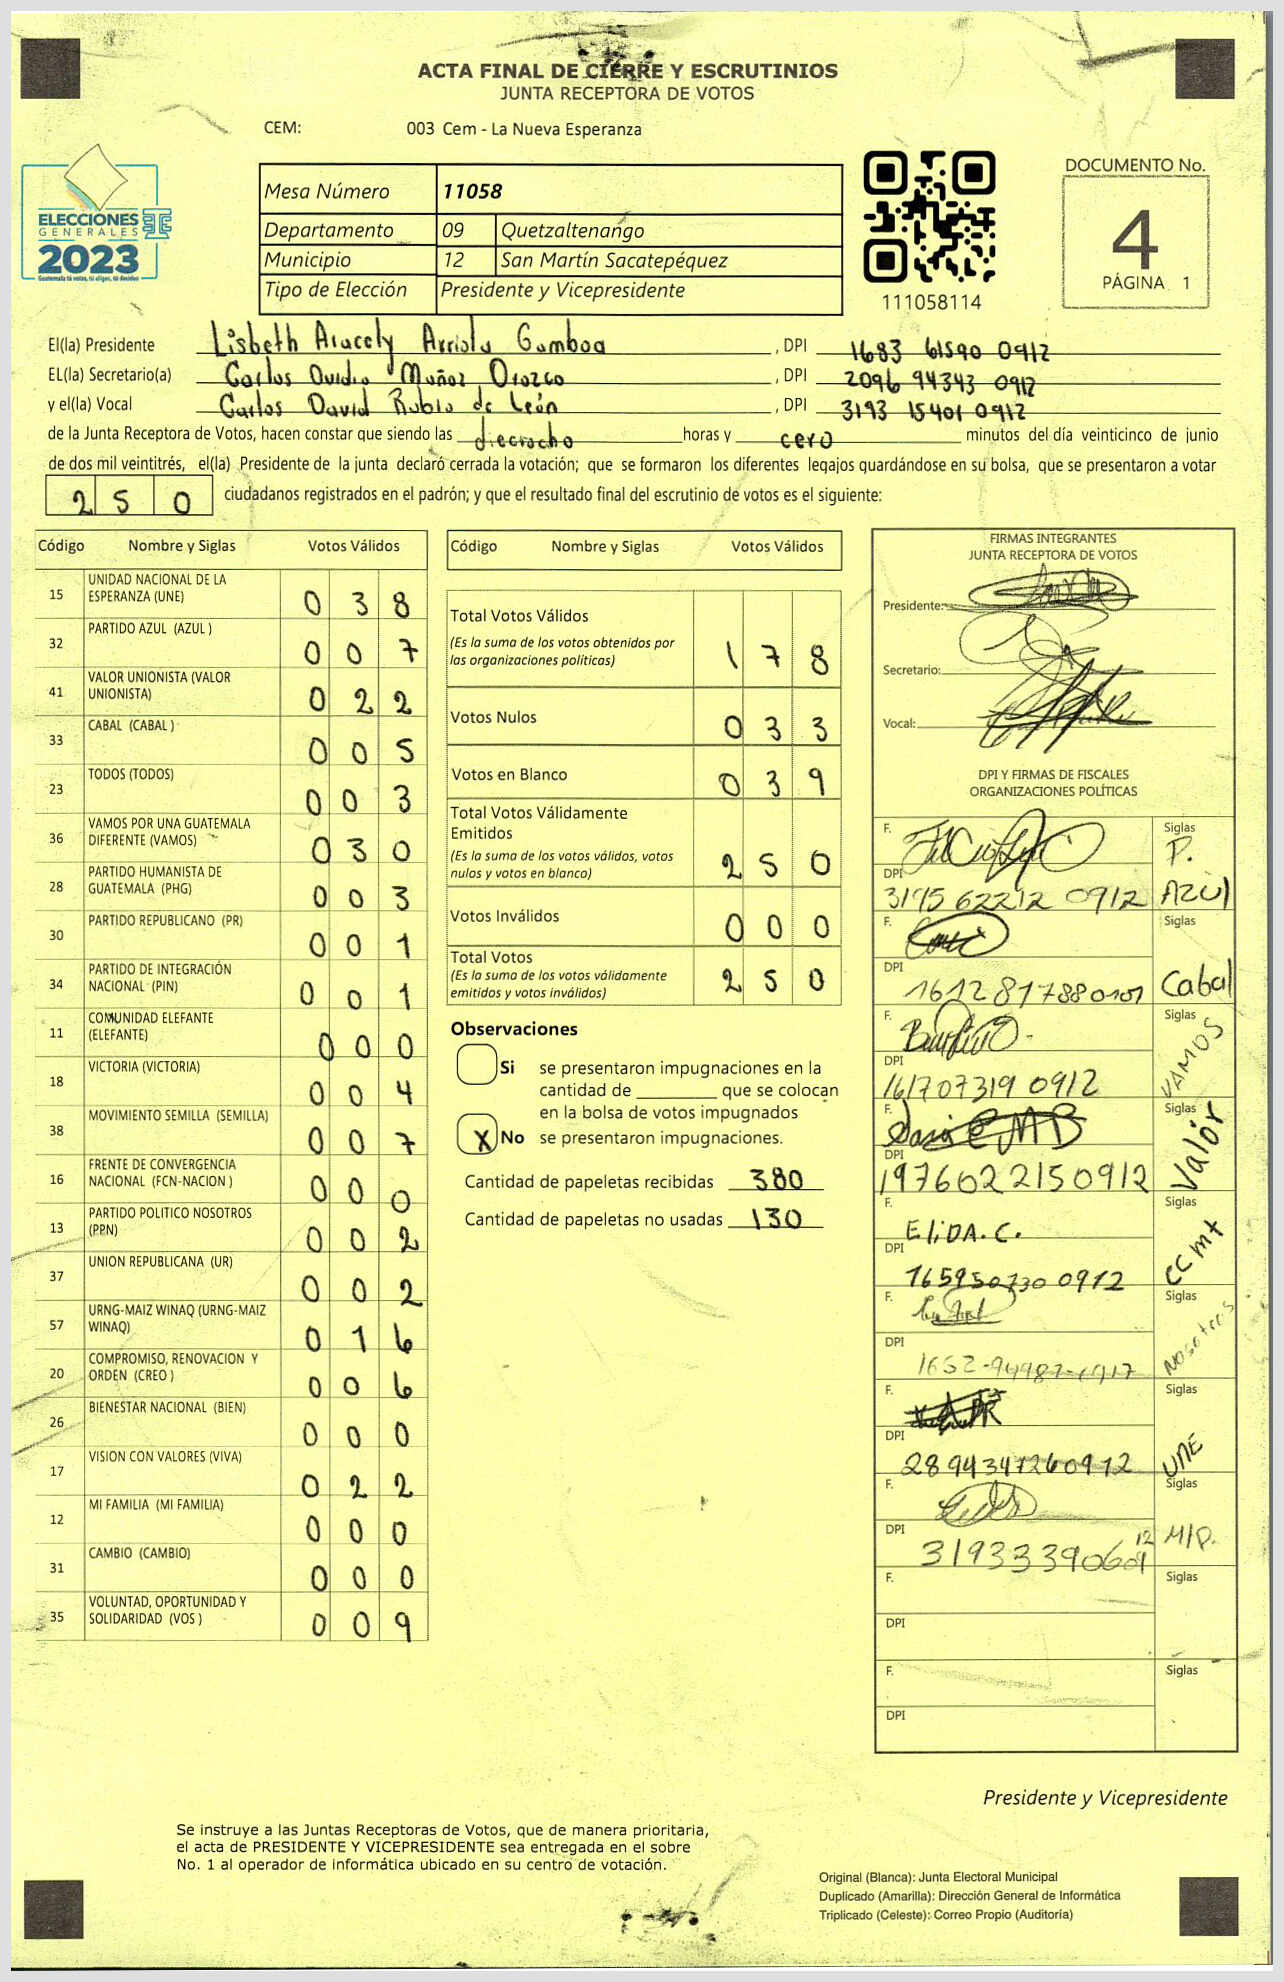 ACTA FINAL DE CIERRE Y ESCRUTINIOS
JUNTA RECEPTORA DE VOTOS
CEM: 003 Cem - La Nueva Esperanza
ELECCIONES
GENERALES
2023
Guatemala tú votas, tú eliges, tú decides
Mesa Número 11058
Departamento 09 Quetzaltenango
Municipio 12 San Martín Sacatepéquez
Tipo de Elección Presidente y Vicepresidente
111058114
DOCUMENTO No.
4
PÁGINA 1
El(la) Presidente Lisbeth Aracely Arriola Gamboa, DPI 1683 61590 0912
EL(la) Secretario(a) Carlos Ovidio Muñoz Orozco, DPI 2096 94343 0912
y el(la) Vocal Carlos David Rubio de León, DPI 3193 15401 0912
de la Junta Receptora de Votos, hacen constar que siendo las dieciocho horas y cero minutos del día veinticinco de junio
de dos mil veintitrés, el(la) Presidente de la junta declaró cerrada la votación; que se formaron los diferentes legajos guardándose en su bolsa, que se presentaron a votar
250 ciudadanos registrados en el padrón; y que el resultado final del escrutinio de votos es el siguiente:
Código Nombre y Siglas Votos Válidos
15 UNIDAD NACIONAL DE LA ESPERANZA (UNE) 038
32 PARTIDO AZUL (AZUL ) 007
41 VALOR UNIONISTA (VALOR UNIONISTA) 022
33 CABAL (CABAL ) 005
23 TODOS (TODOS) 003
36 VAMOS POR UNA GUATEMALA DIFERENTE (VAMOS) 030
28 PARTIDO HUMANISTA DE GUATEMALA (PHG) 003
30 PARTIDO REPUBLICANO (PR) 001
34 PARTIDO DE INTEGRACIÓN NACIONAL (PIN) 001
11 COMUNIDAD ELEFANTE (ELEFANTE) 000
18 VICTORIA (VICTORIA) 004
38 MOVIMIENTO SEMILLA (SEMILLA) 007
16 FRENTE DE CONVERGENCIA NACIONAL (FCN-NACION ) 000
13 PARTIDO POLITICO NOSOTROS (PPN) 002
37 UNION REPUBLICANA (UR) 002
57 URNG-MAIZ WINAQ (URNG-MAIZ WINAQ) 016
20 COMPROMISO, RENOVACION Y ORDEN (CREO ) 006
26 BIENESTAR NACIONAL (BIEN) 000
17 VISION CON VALORES (VIVA) 022
12 MI FAMILIA (MI FAMILIA) 000
31 CAMBIO (CAMBIO) 000
35 VOLUNTAD, OPORTUNIDAD Y SOLIDARIDAD (VOS ) 009
Código Nombre y Siglas Votos Válidos
Total Votos Válidos 178
(Es la suma de los votos obtenidos por
las organizaciones políticas)
Votos Nulos 033
Votos en Blanco 039
Total Votos Válidamente
Emitidos 250
(Es la suma de los votos válidos, votos
nulos y votos en blanco)
Votos Inválidos 000
Total Votos 250
(Es la suma de los votos válidamente
emitidos y votos inválidos)
Observaciones
Si se presentaron impugnaciones en la
cantidad de ________ que se colocan
en la bolsa de votos impugnados
X No se presentaron impugnaciones.
Cantidad de papeletas recibidas 380
Cantidad de papeletas no usadas 130
FIRMAS INTEGRANTES
JUNTA RECEPTORA DE VOTOS
Presidente:
Secretario:
Vocal:
DPI Y FIRMAS DE FISCALES
ORGANIZACIONES POLÍTICAS
F. Siglas P. Azul
DPI 3195 62212 0912
F. Siglas Cabal
DPI 1612817880101
F. Siglas VAMOS
DPI 161707319 0912
F. Siglas Valor
DPI 1976022150912
F. EliDA. C. Siglas CC mt
DPI 165950730 0912
F. Siglas Nosotros
DPI
F. Siglas UNE
DPI 2894347260912
F. Siglas M/P.
DPI 31933390609 12
F. Siglas
DPI
F. Siglas
DPI
Presidente y Vicepresidente
Se instruye a las Juntas Receptoras de Votos, que de manera prioritaria,
el acta de PRESIDENTE Y VICEPRESIDENTE sea entregada en el sobre
No. 1 al operador de informática ubicado en su centro de votación.
Original (Blanca): Junta Electoral Municipal
Duplicado (Amarilla): Dirección General de Informática
Triplicado (Celeste): Correo Propio (Auditoría)